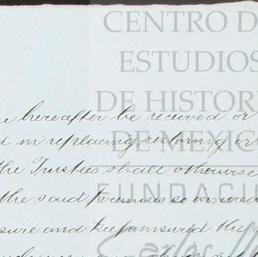 CENTRO D
ESTUDIOS
DE HISTOR
DE MEXIC
FUNDACIÓ
hereafter be received or
in replacing restoring or
the Trustees shall otherwise
the said premises so insured
sure and keep insured the